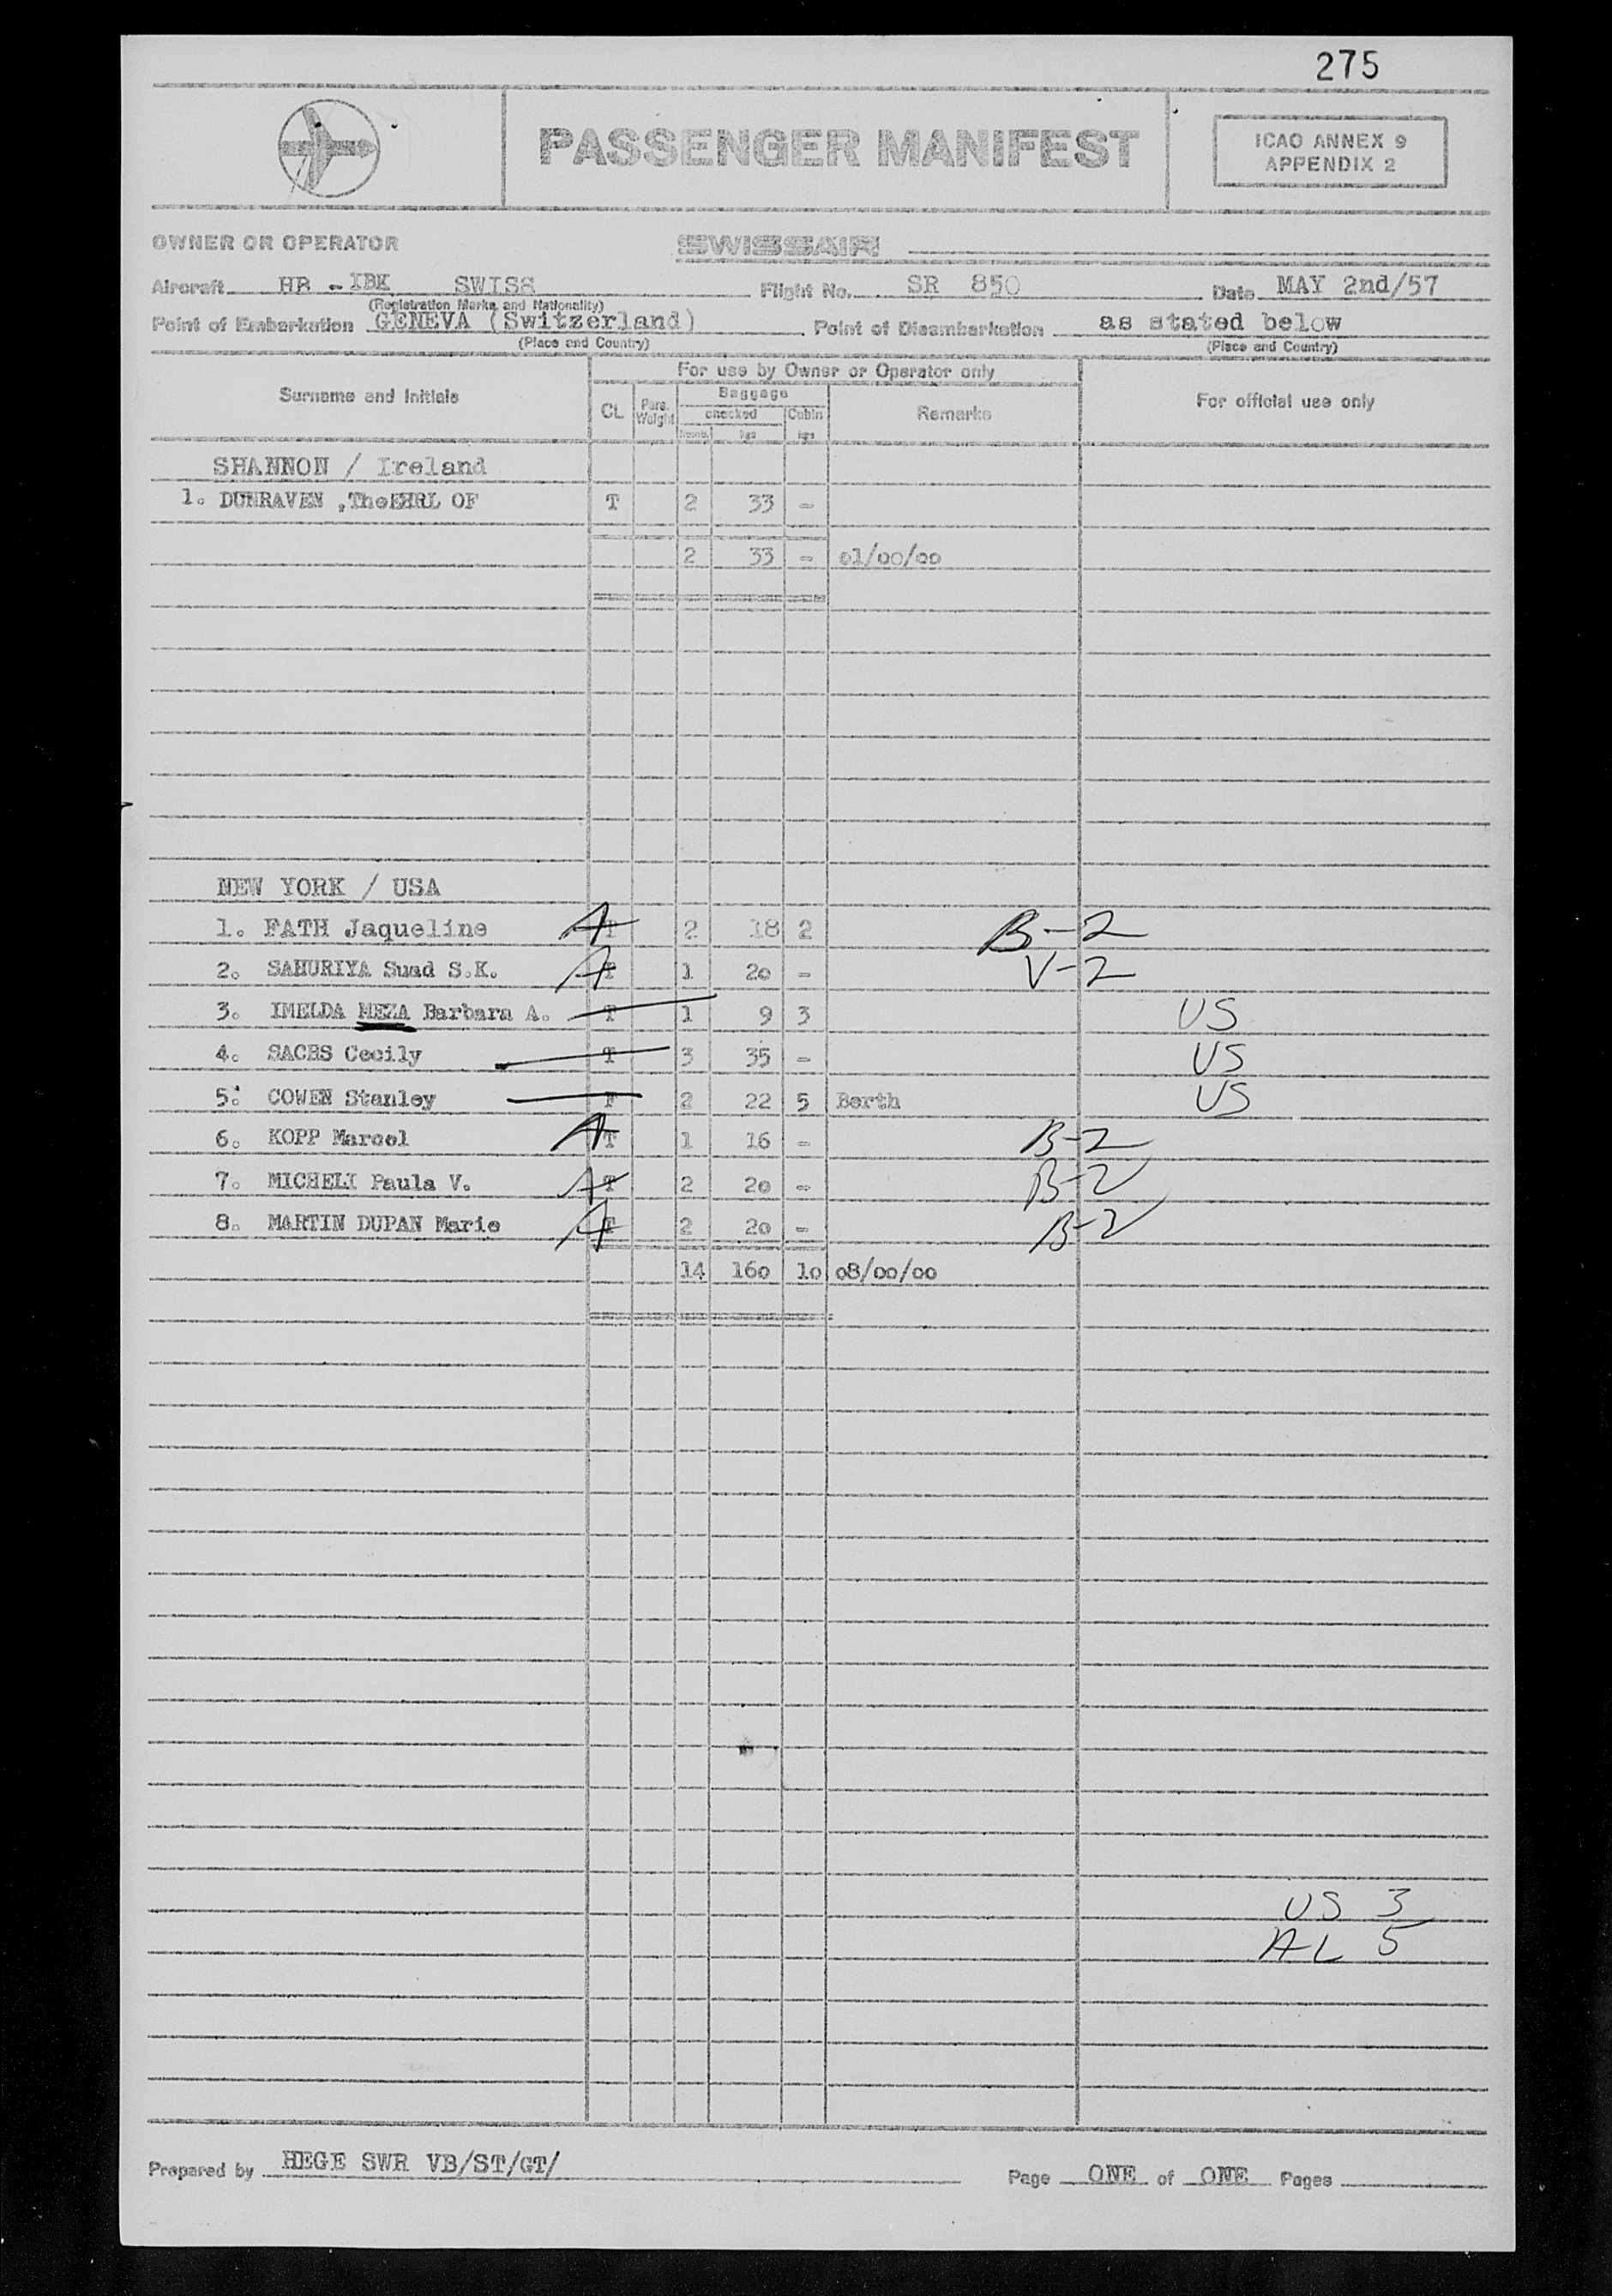 275
PASSENGER MANIFEST
ICAO ANNEX 9
APPENDIX 2
OWNER OR OPERATOR SWISSAIR
Aircraft HB - IBK SWISS Flight No. SR 850 Date MAY 2nd/57
(Registration Marks and Nationality)
Point of Embarkation GENEVA (Switzerland) Point of Disembarkation as stated below
(Place and Country) (Place and Country)
For use by Owner or Operator only
Surname and Initials CL Pass. Weight Baggage checked Cabin Remarks For official use only
Numb. kgs kgs
SHANNON / Ireland
1. DUNRAVEN ,TheEHRL OF T 2 33 -
2 33 - o1/oo/oo
NEW YORK / USA
1. FATH Jaqueline A T 2 18 2 B-2
2. SAHURIYA Suad S.K. A T 1 2o - V-2
3. IMELDA MEZA Barbara A. T 1 9 3 US
4. SACHS Cecily T 3 35 - US
5. COWEN Stanley F 2 22 5 Berth US
6. KOPP Marcel A T 1 16 - B-2
7. MICHELI Paula V. A T 2 2o - B-2
8. MARTIN DUPAN Marie A T 2 2o - B-2
14 16o 1o o8/oo/oo
US 3
AL 5
Prepared by HEGE SWR VB/ST/GT/ Page ONE of ONE Pages